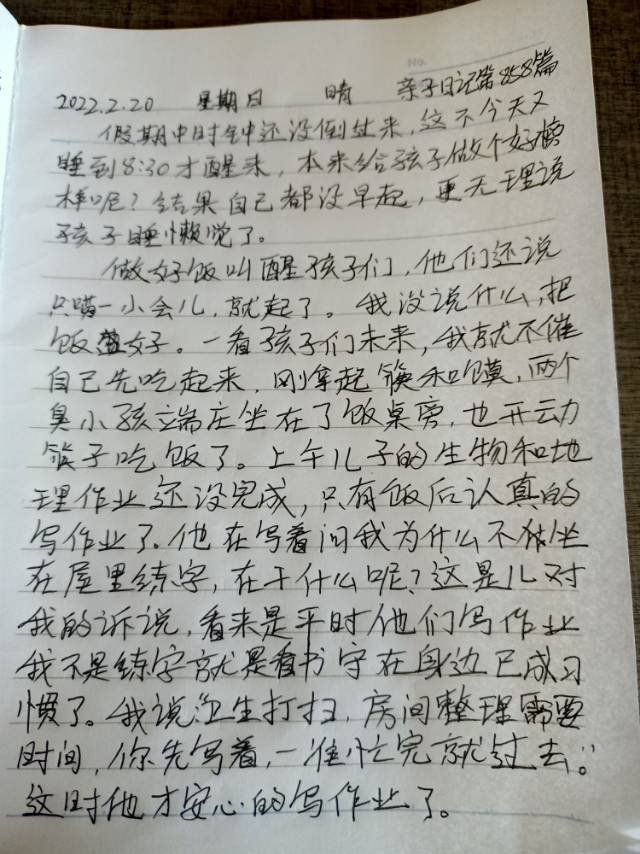 No.
2022.2.20 星期日 晴 亲子日记第858篇
假期中时钟还没倒过来，这不今天又
睡到8:30才醒来，本来给孩子做个好榜
样呢？结果自己都没早起，更无理说
孩子睡懒觉了。
做好饭叫醒孩子们，他们还说
只喵一小会儿，就起了。我没说什么，把
饭盛好。一看孩子们未来，我就不催
自己先吃起来，刚拿起筷和馍，两个
臭小孩端庄坐在了饭桌旁，也开动
筷子吃饭了。上午儿子的生物和地
理作业还没完成，只有饭后认真的
写作业了。他在写着问我为什么不能坐
在屋里练字，在干什么呢？这是儿对
我的诉说，看来是平时他们写作业
我不是练字就是看书守在身边已成习
惯了。我说卫生打扫，房间整理需要
时间，你先写着，一准忙完就过去。"
这时他才安心的写作业了。